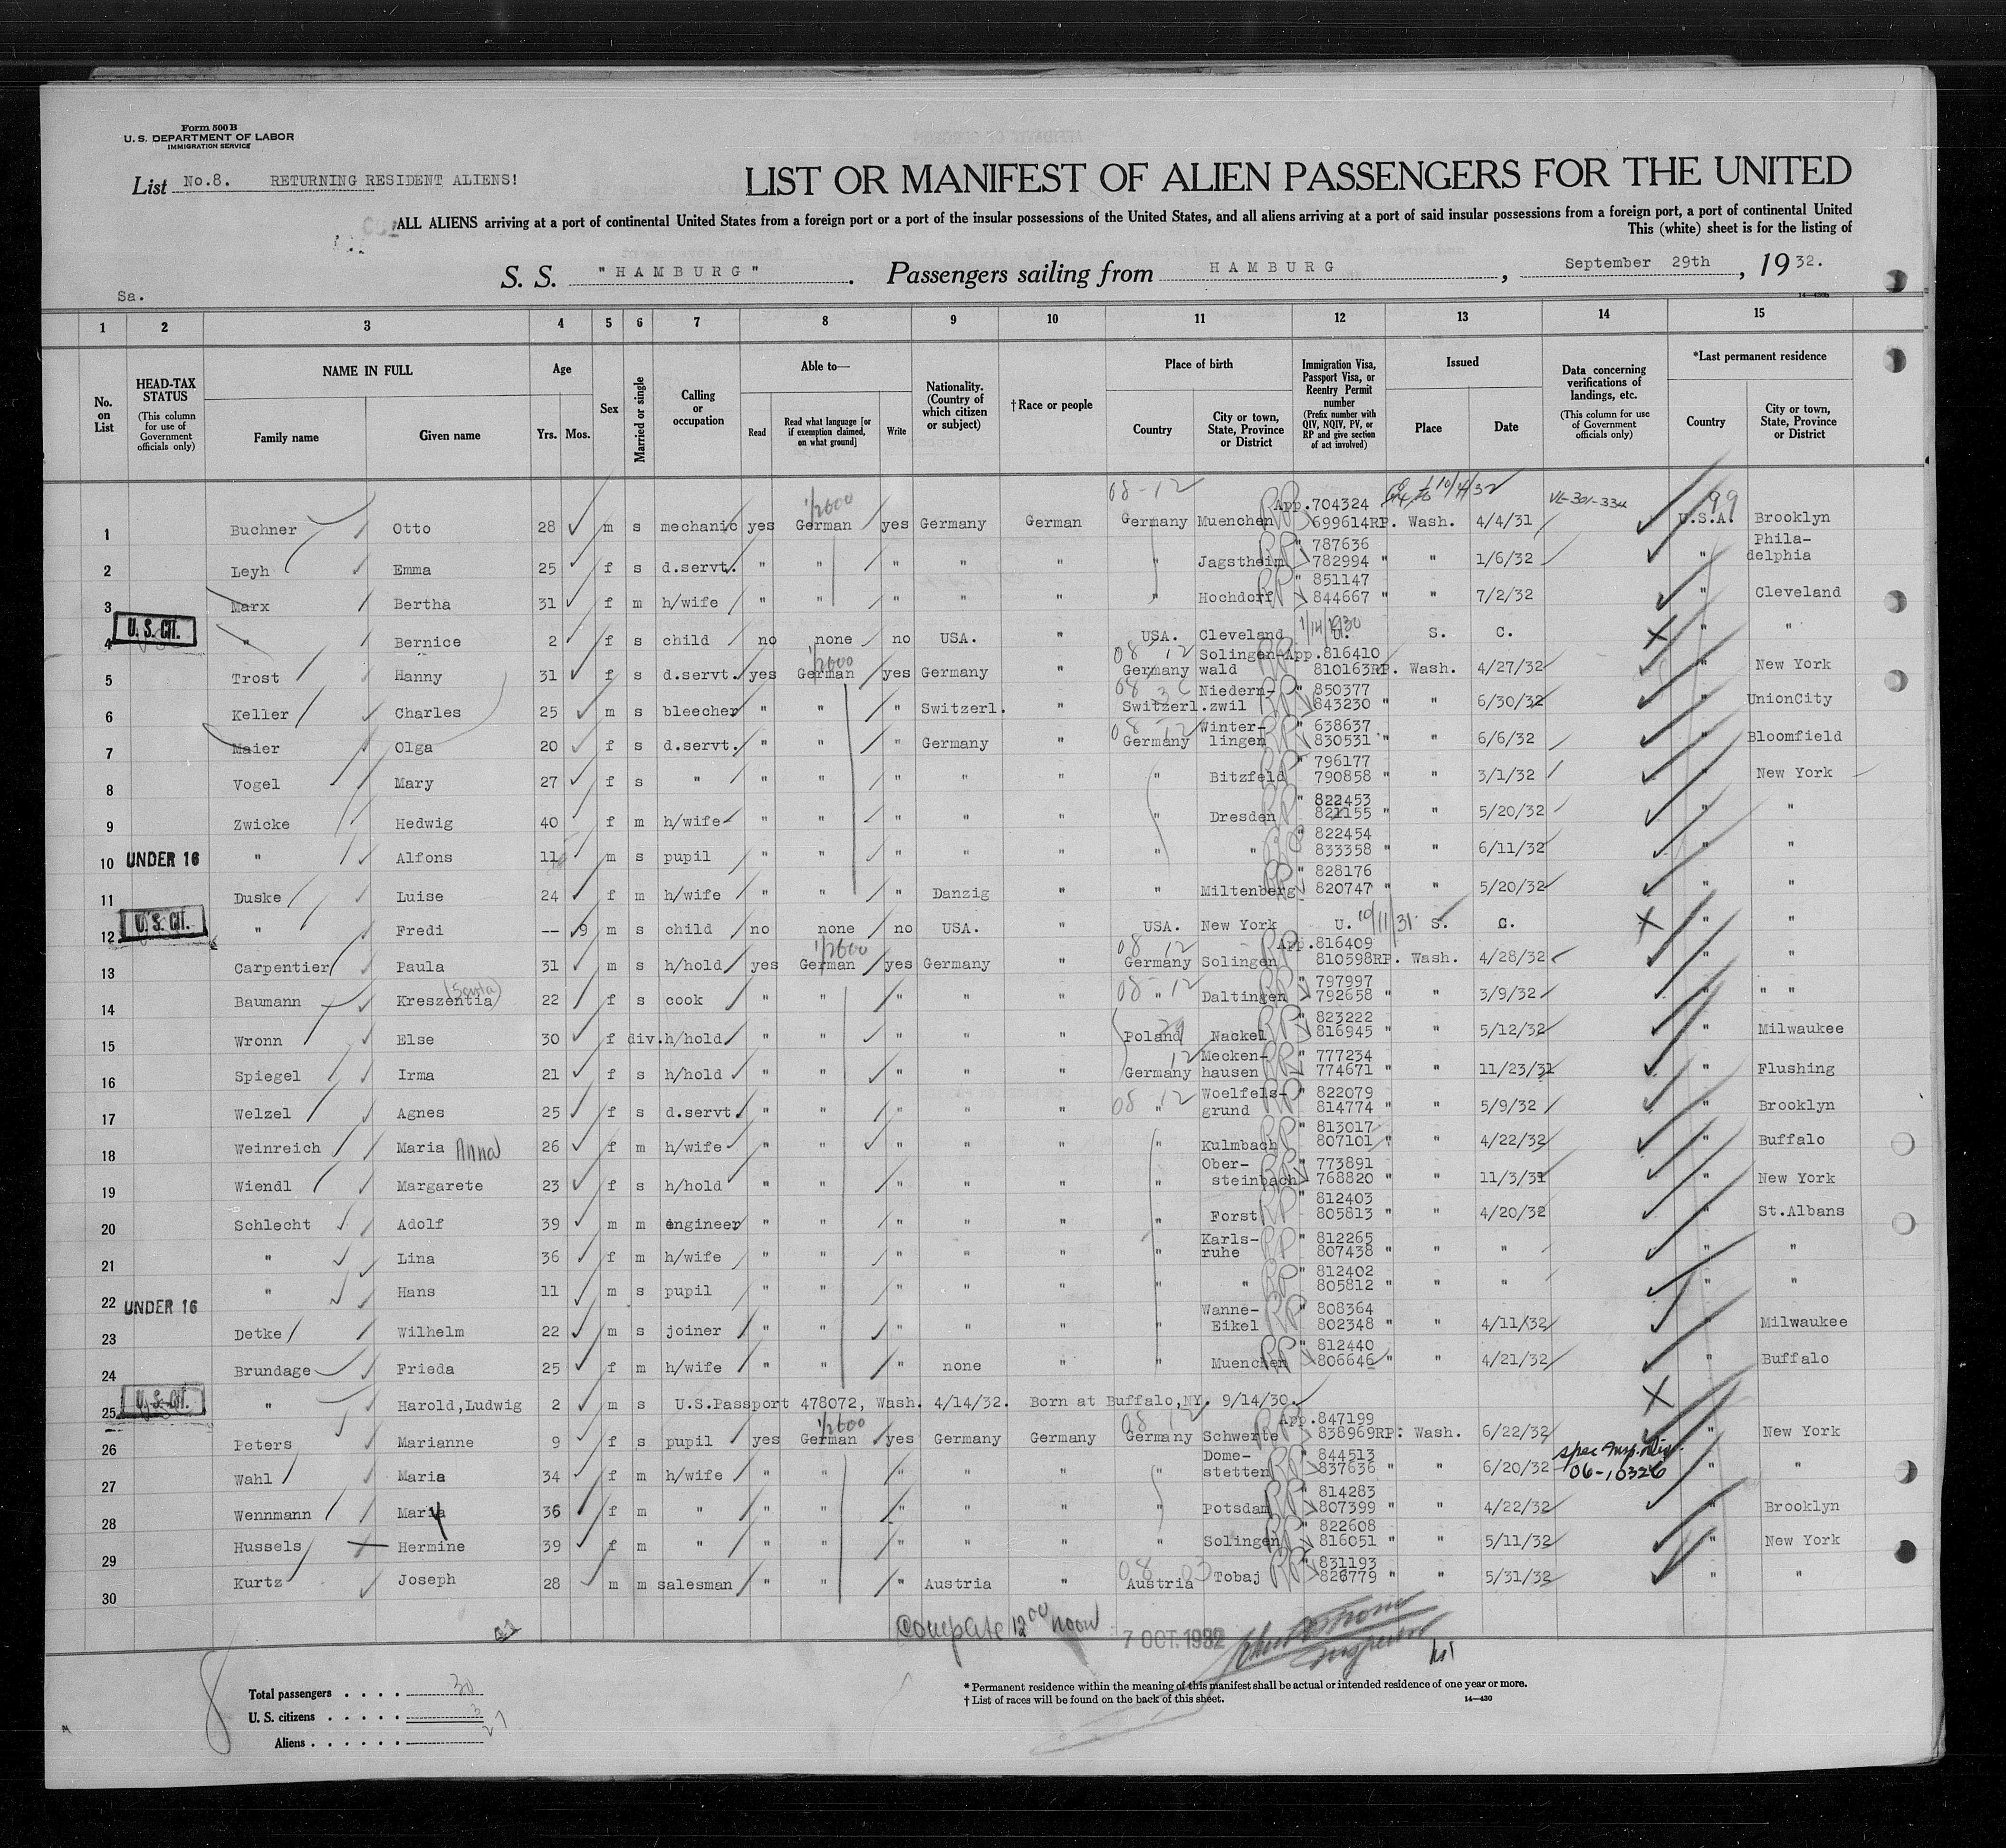 Form 500 B
U. S. DEPARTMENT OF LABOR
IMMIGRATION SERVICE
List No.8. RETURNING RESIDENT ALIENS!
LIST OR MANIFEST OF ALIEN PASSENGERS FOR THE UNITED
ALL ALIENS arriving at a port of continental United States from a foreign port or a port of the insular possessions of the United States, and all aliens arriving at a port of said insular possessions from a foreign port, a port of continental United
This (white) sheet is for the listing of
S. S. "HAMBURG". Passengers sailing from HAMBURG, September 29th, 1932.
Sa.
1 2 3 4 5 6 7 8 9 10 11 12 13 14 15
No. on List
HEAD-TAX STATUS (This column for use of Government officials only)
NAME IN FULL Family name Given name
Age Yrs. Mos.
Sex
Married or single
Calling or occupation
Able to— Read Read what language [or if exemption claimed, on what ground] Write
Nationality. (Country of which citizen or subject)
† Race or people
Place of birth Country City or town, State, Province or District
Immigration Visa, Passport Visa, or Reentry Permit number (Prefix number with QIV, NQIV, PV, or RP and give section of act involved)
Issued Place Date
Data concerning verifications of landings, etc. (This column for use of Government officials only)
*Last permanent residence Country City or town, State, Province or District
08-12 10/4/32 VL-301-334 99
1 Buchner Otto 28 m s mechanic yes German yes Germany German Germany Muenchen RP App.704324 699614RP. Wash. 4/4/31 U.S.A. Brooklyn
2 Leyh Emma 25 f s d.servt. " " " " " " Jagstheim RP " 787636 782994 " " 1/6/32 " Phila-delphia
3 Marx Bertha 31 f m h/wife " " " " " " Hochdorf RP " 851147 844667 " " 7/2/32 " Cleveland
4 U. S. CIT. " Bernice 2 f s child no none no USA. " USA. Cleveland 1/14/1930 U. S. C. " "
5 Trost Hanny 31 f s d.servt. yes German yes Germany " 08 12 Germany Solingen-wald App.816410 810163RP. Wash. 4/27/32 " New York
6 Keller Charles 25 m s bleecher " " " Switzerl. " Switzerl. Niedern-zwil RP " 850377 843230 " " 6/30/32 " UnionCity
7 Maier Olga 20 f s d.servt. " " " Germany " 08 12 Germany Winter-lingen RP " 638637 830531 " " 6/6/32 " Bloomfield
8 Vogel Mary 27 f s " " " " " " " Bitzfeld RP " 796177 790858 " " 3/1/32 " New York
9 Zwicke Hedwig 40 f m h/wife " " " " " " Dresden RP " 822453 821155 " " 5/20/32 " "
10 UNDER 16 " Alfons 11 m s pupil " " " " " " " RP " 822454 833358 " " 6/11/32 " "
11 Duske Luise 24 f m h/wife " " " Danzig " " Miltenberg RP " 828176 820747 " " 5/20/32 " "
12 U. S. CIT. " Fredi -- 9 m s child no none no USA. " USA. New York U. 10/11/31 S. C. " "
13 Carpentier Paula 31 m s h/hold yes German yes Germany " 08 12 Germany Solingen RP App.816409 810598RP. Wash. 4/28/32 " "
14 Baumann Kreszentia 22 f s cook " " " " " 08-12 " Daltingen RP " 797997 792658 " " 3/9/32 " " "
15 Wronn Else 30 f div. h/hold " " " " " Poland Nackel RP " 823222 816945 " " 5/12/32 " Milwaukee
16 Spiegel Irma 21 f s h/hold " " " " " 12 Germany Mecken-hausen RP " 777234 774671 " " 11/23/31 " Flushing
17 Welzel Agnes 25 f s d.servt. " " " " " 08-12 " Woelfels-grund RP " 822079 814774 " " 5/9/32 " Brooklyn
18 Weinreich Maria Anna 26 f m h/wife " " " " " " Kulmbach RP " 813017 807101 " " 4/22/32 " Buffalo
19 Wiendl Margarete 23 f s h/hold " " " " " " Ober-steinbach RP " 773891 768820 " " 11/3/31 " New York
20 Schlecht Adolf 39 m m engineer " " " " " " Forst RP " 812403 805813 " " 4/20/32 " St.Albans
21 " Lina 36 f m h/wife " " " " " " Karls-ruhe RP " 812265 807438 " " " " "
22 UNDER 16 " Hans 11 m s pupil " " " " " " " RP " 812402 805812 " " " " "
23 Detke Wilhelm 22 m s joiner " " " " " " Wanne-Eikel RP " 808364 802348 " " 4/11/32 " Milwaukee
24 Brundage Frieda 25 f m h/wife " " " none " " Muenchen RP " 812440 806646 " " 4/21/32 " Buffalo
25 U. S. CIT. " Harold,Ludwig 2 m s U.S.Passport 478072, Wash. 4/14/32. Born at Buffalo,NY. 9/14/30.
26 Peters Marianne 9 f s pupil yes German yes Germany German 08 12 Germany Schwerte RP App.847199 838969RP. Wash. 6/22/32 " New York
27 Wahl Maria 34 f m h/wife " " " " " " Dome-stetten RP " 844513 837636 " " 6/20/32 06-10326 " "
28 Wennmann Maria 36 f m " " " " " " " Potsdam RP " 814283 807399 " " 4/22/32 " Brooklyn
29 Hussels Hermine 39 f m " " " " " " " Solingen RP " 822608 816051 " " 5/11/32 " New York
30 Kurtz Joseph 28 m m salesman " " " Austria " 08 03 Austria Tobaj RP " 831193 826779 " " 5/31/32 " "
Complete 12 00 noon 7 OCT. 1932 Inspector
8
Total passengers . . . . 30
U. S. citizens . . . . . 3
Aliens . . . . . . 27
* Permanent residence within the meaning of this manifest shall be actual or intended residence of one year or more.
† List of races will be found on the back of this sheet. 14—430